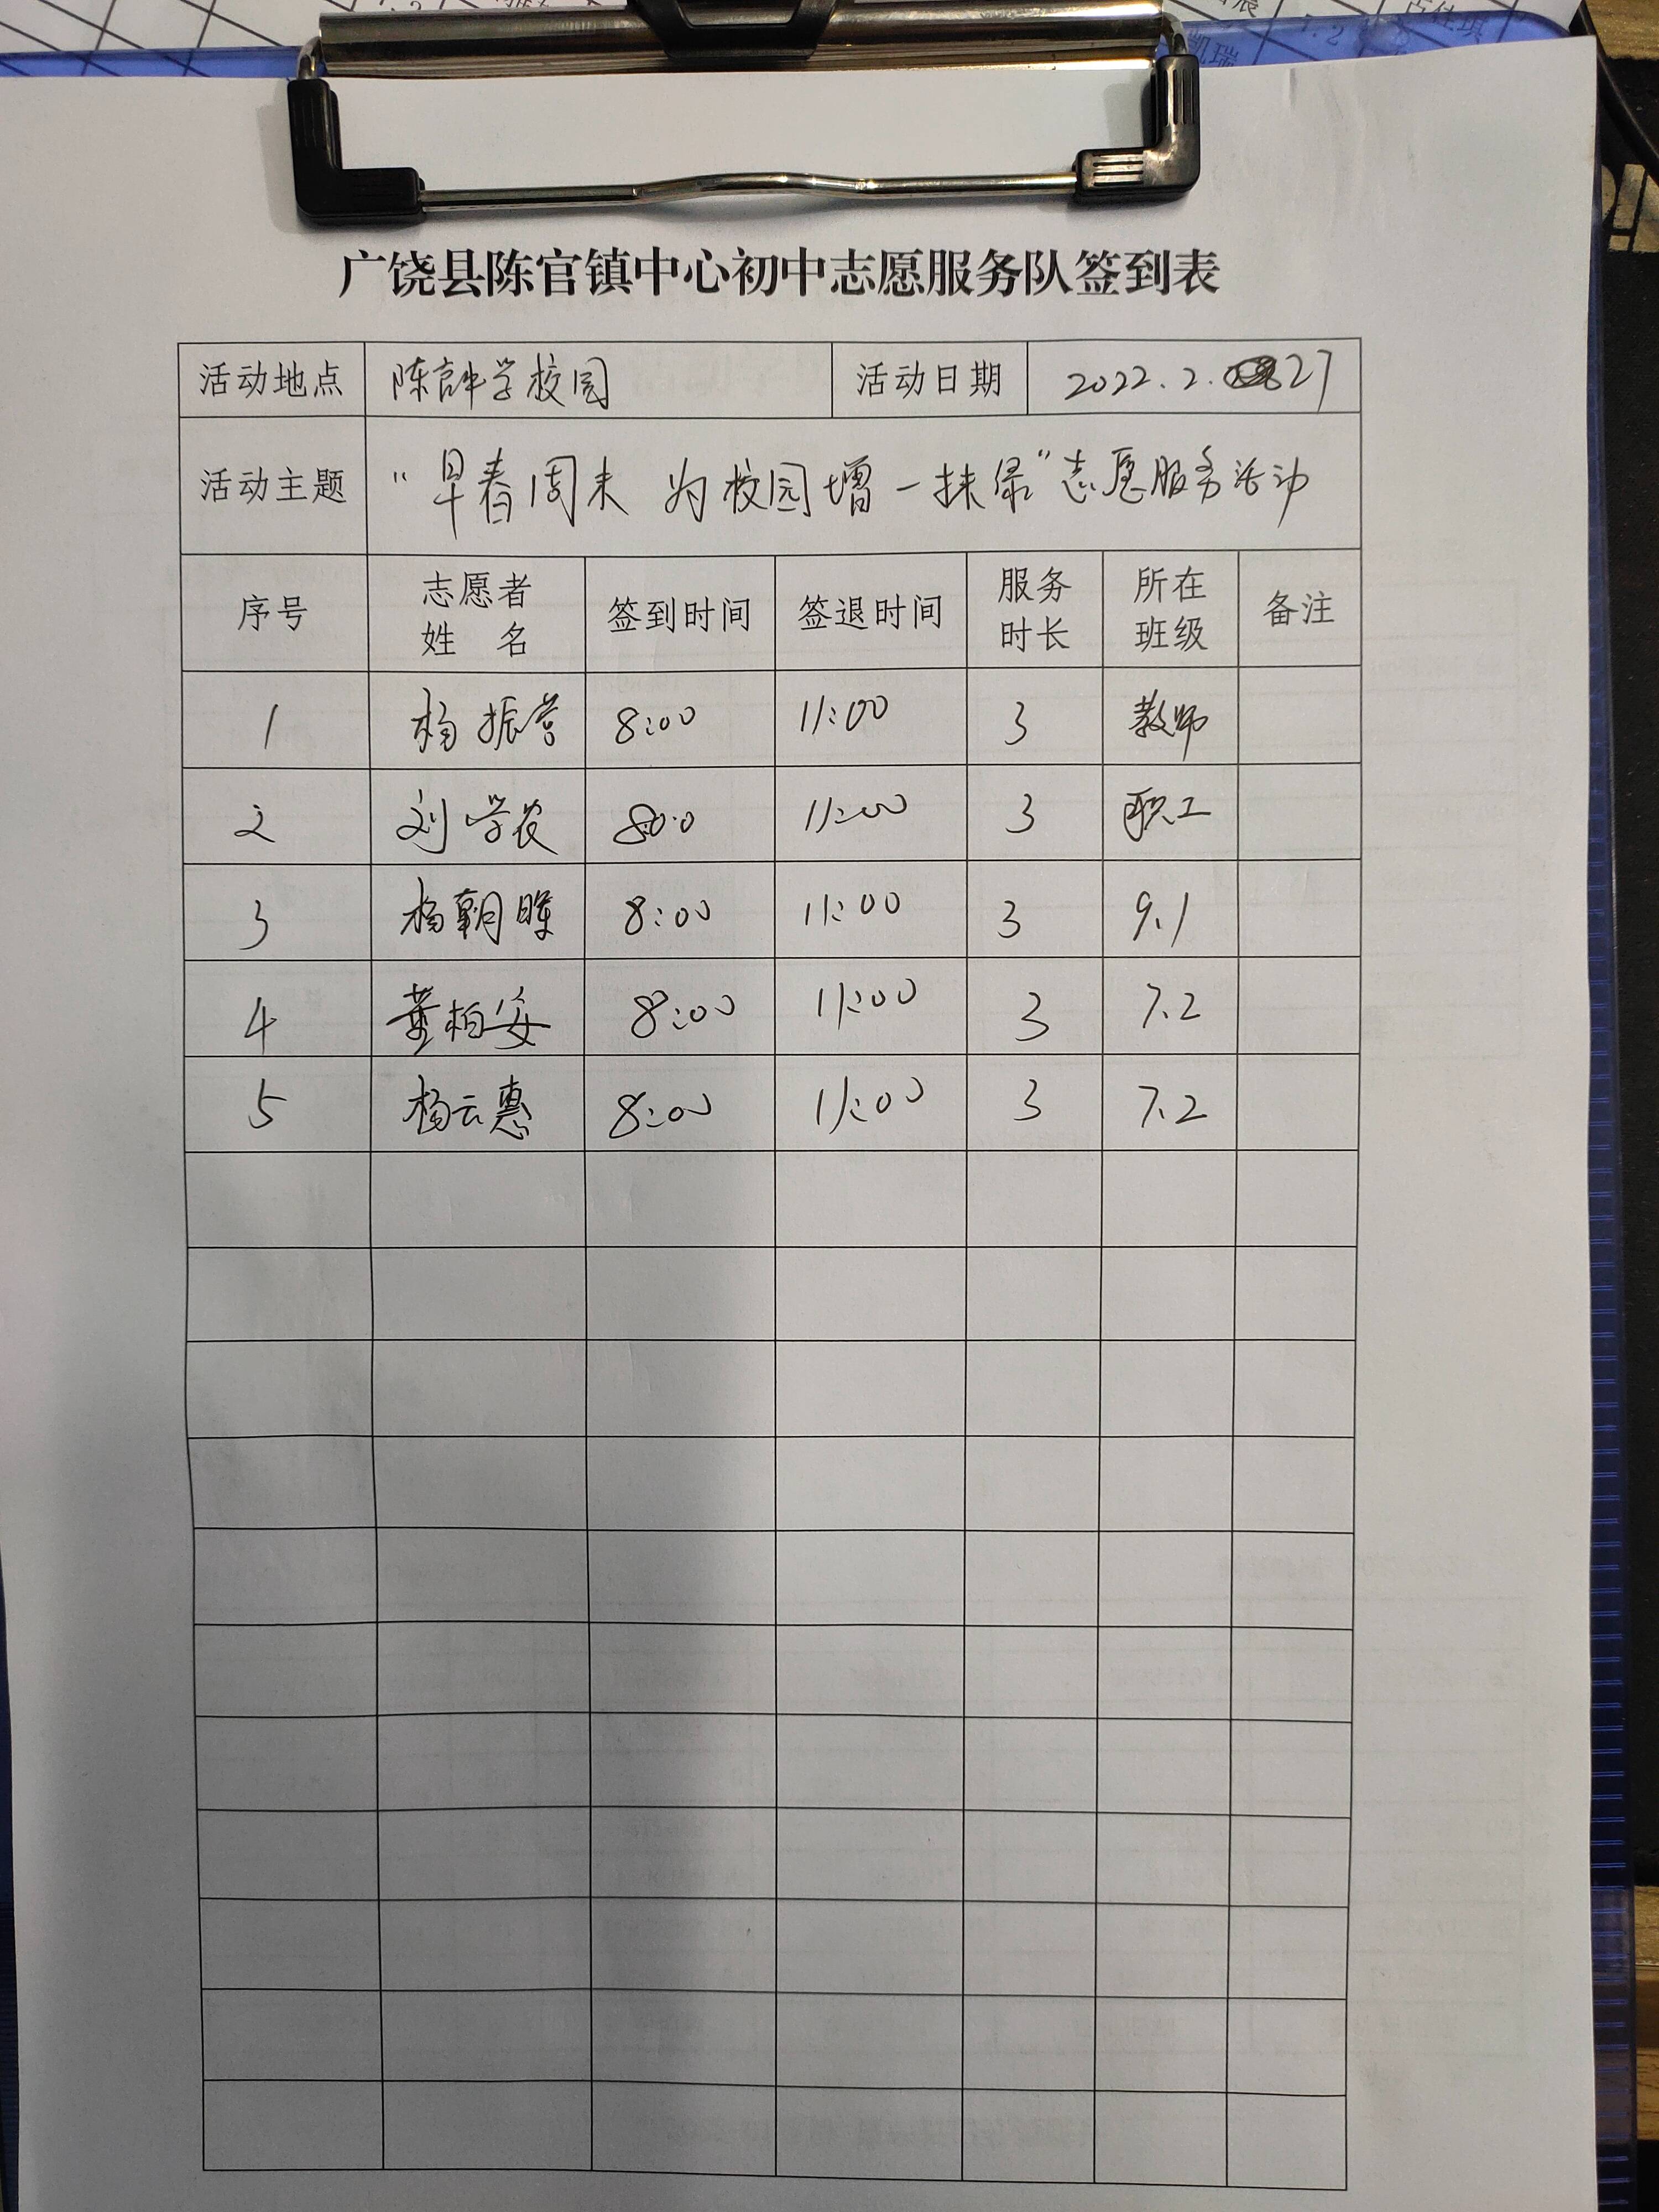 广饶县陈官镇中心初中志愿服务队签到表
活动地点 陈官中学校园 活动日期 2022.2.27
活动主题 “早春周末 为校园增一抹绿”志愿服务活动
序号 志愿者姓名 签到时间 签退时间 服务时长 所在班级 备注
1 杨振营 8:00 11:00 3 教师
2 刘学农 8:00 11:00 3 职工
3 杨朝晖 8:00 11:00 3 9.1
4 董柏安 8:00 11:00 3 7.2
5 杨云惠 8:00 11:00 3 7.2